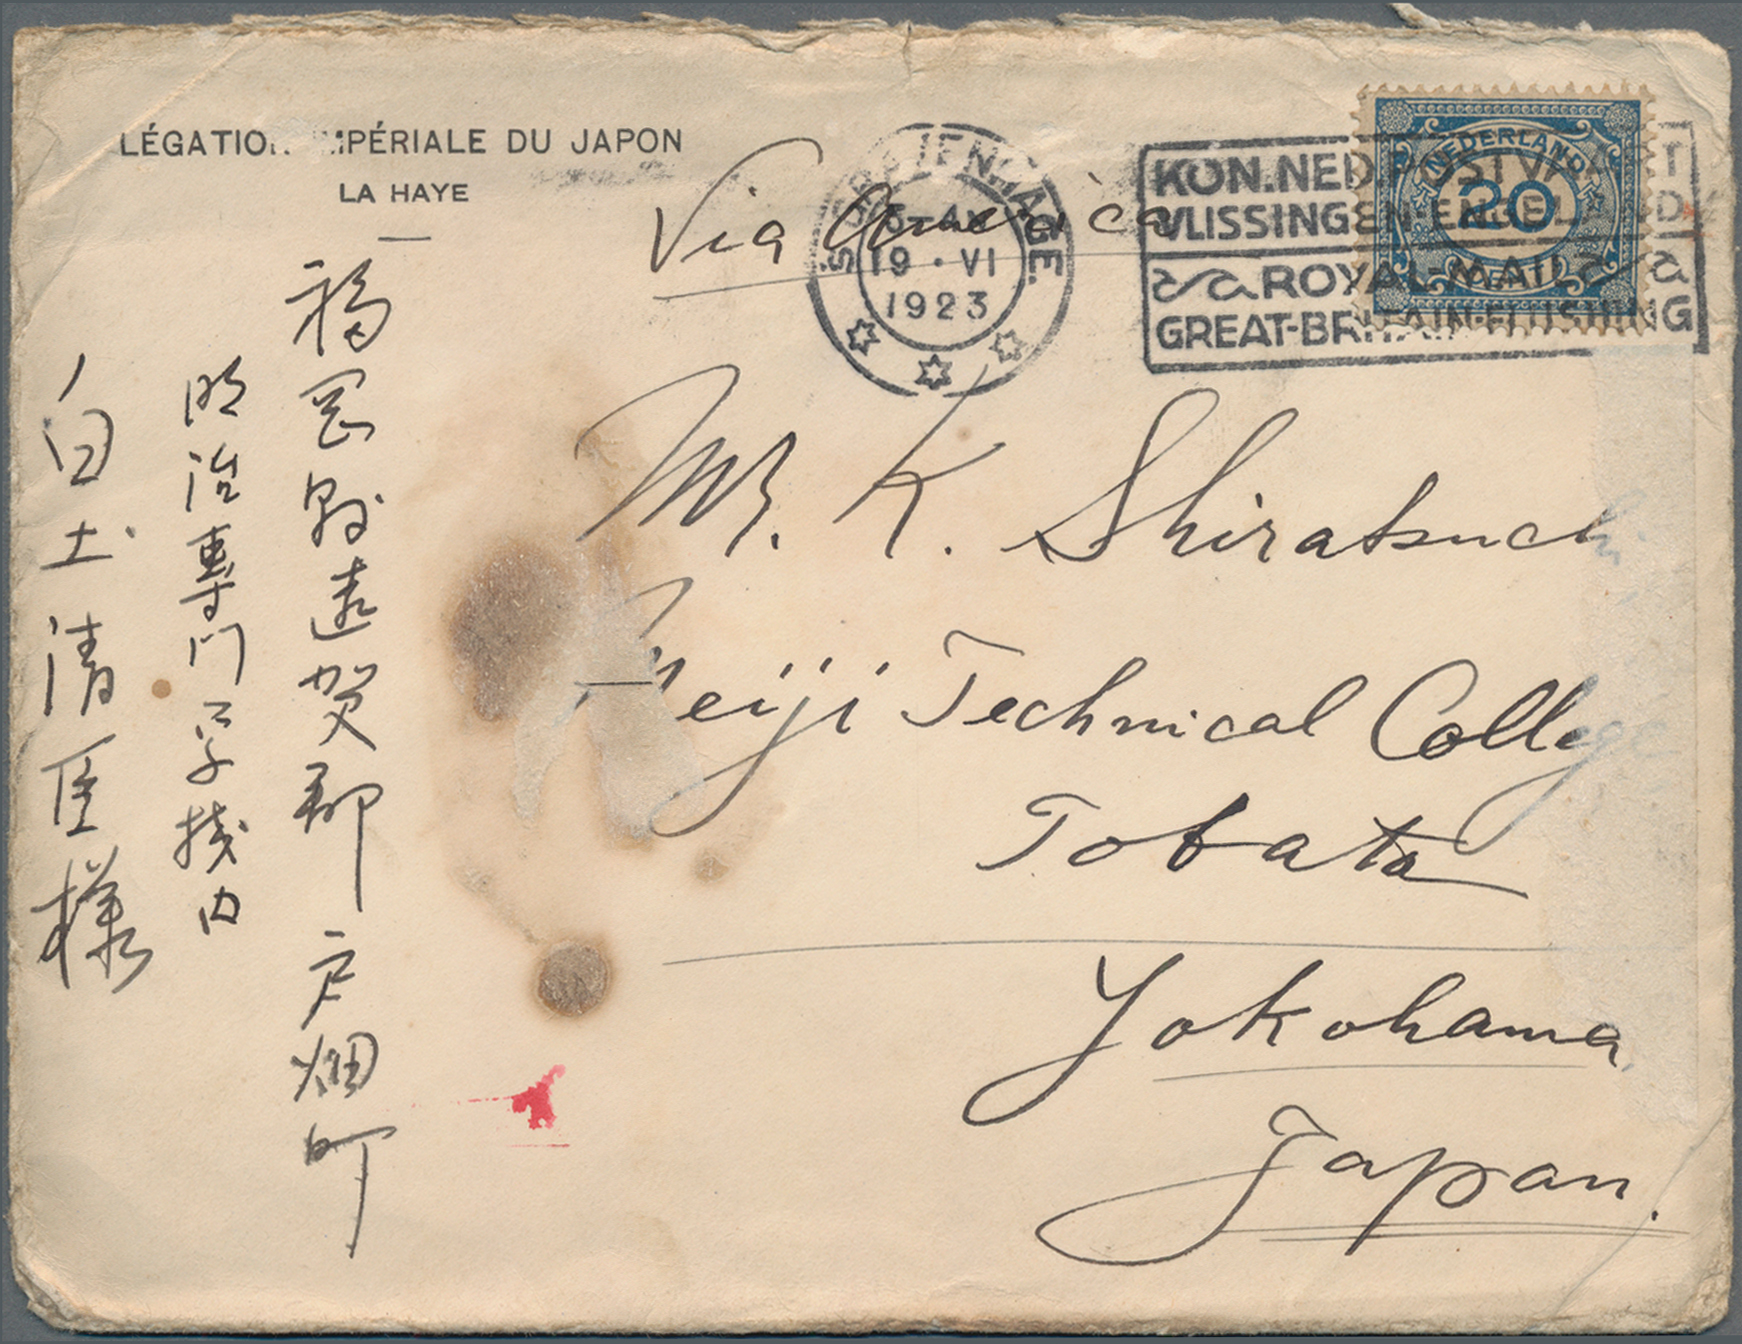 LÉGATION IMPÉRIALE DU JAPON
LA HAYE
Via America
'S GRAVENHAGE.
19 · VI
1923
KON.NED.POSTVAART
VLISSINGEN-ENGELAND
ROYAL-MAIL
GREAT-BRITAIN-FLUSHING
NEDERLAND
20
CENT
Mr. K. Shiratsuchi
Meiji Technical College
Tobata
Yokohama
Japan.
福岡縣遠賀郡戸畑町
明治専門学校内
白土清 様